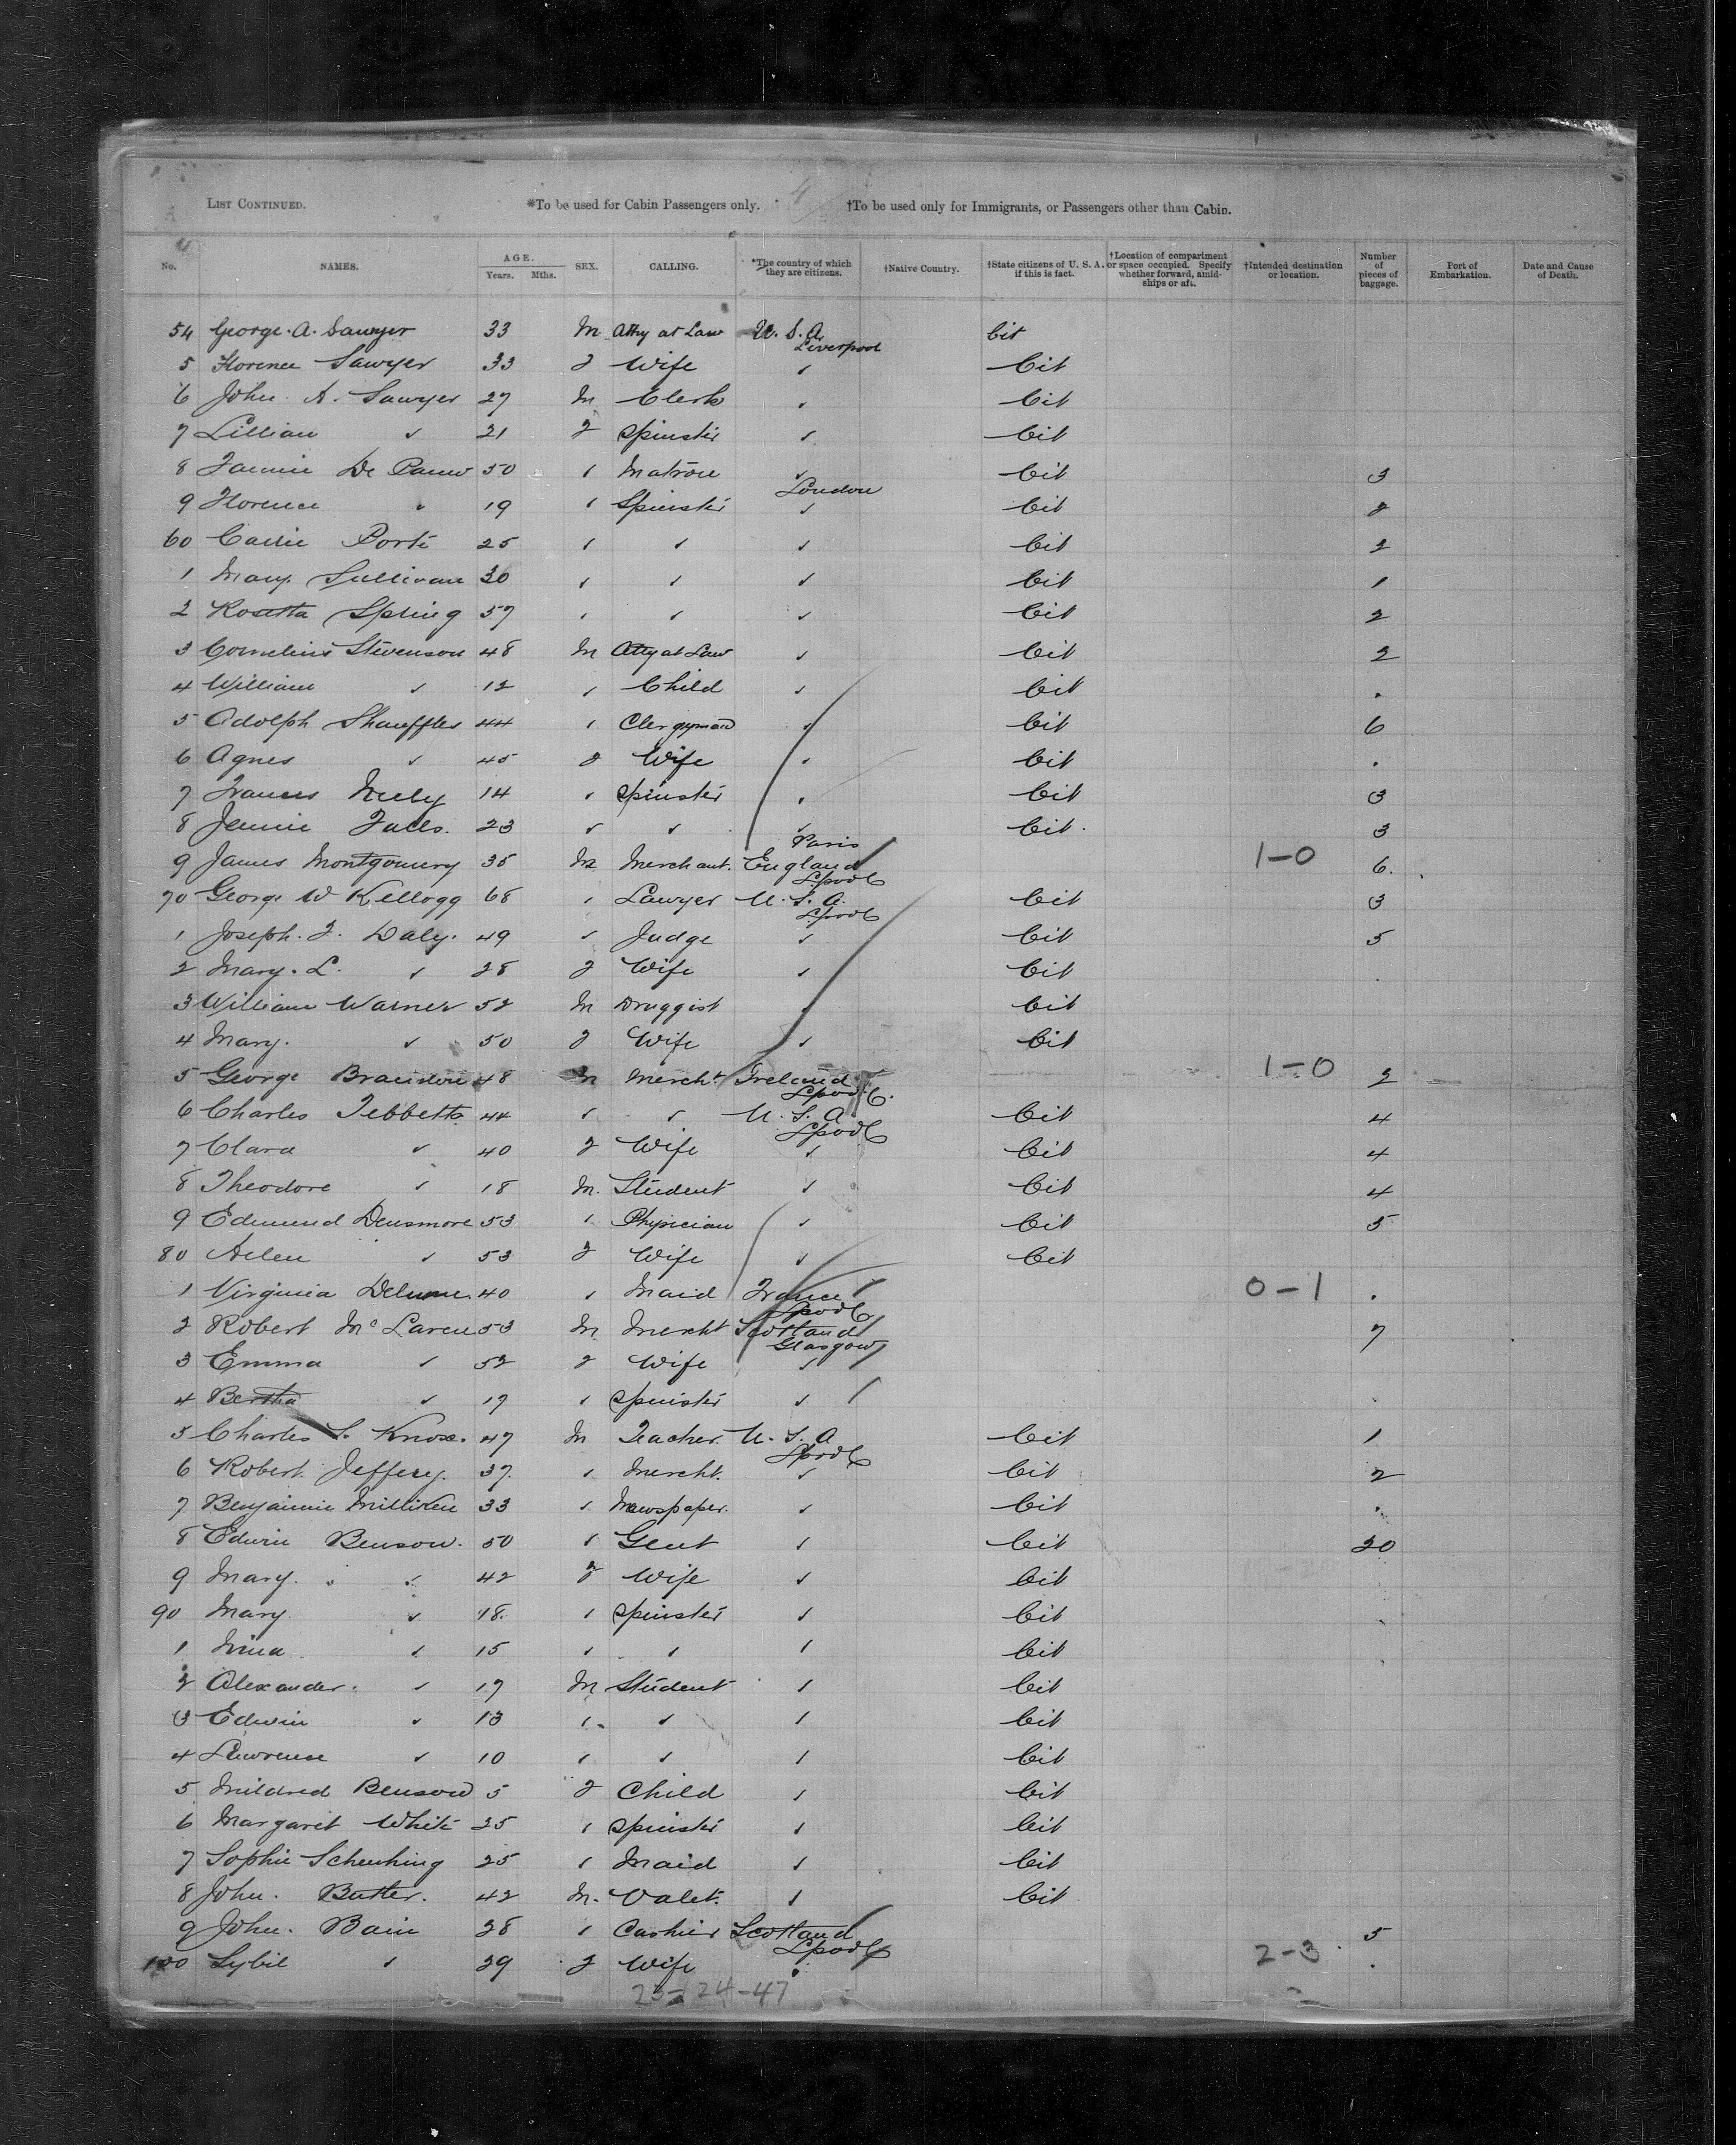 LIST CONTINUED. *To be used for Cabin Passengers only. 4 †To be used only for Immigrants, or Passengers other than Cabin.
No. NAMES. AGE. Years. Mths. SEX. CALLING. *The country of which they are citizens. †Native Country. †State citizens of U. S. A. if this is fact. †Location of compartment or space occupied. Specify whether forward, amidships or aft. †Intended destination or location. Number of pieces of baggage. Port of Embarkation. Date and Cause of Death.
54 George A. Sawyer 33 M Atty at Law U. S. A. Liverpool Cit
5 Florence Sawyer 33 F Wife ✓ Cit
6 John A. Sawyer 27 M Clerk ✓ Cit
7 Lillian ✓ 21 F Spinster ✓ Cit
8 Fannie De Pauw 50 ✓ Matron ✓ London Cit 3
9 Florence ✓ 19 ✓ Spinster ✓ Cit
60 Carrie Porte 25 ✓ ✓ ✓ Cit 2
1 Mary Sullivan 30 ✓ ✓ ✓ Cit 1
2 Rosetta Spring 57 ✓ ✓ ✓ Cit 2
3 Cornelius Stevenson 48 M Atty at Law ✓ Cit 2
4 William ✓ 12 ✓ Child ✓ Cit .
5 Adolph Shauffler 44 ✓ Clergyman ✓ Cit 6
6 Agnes ✓ 45 F Wife ✓ Cit .
7 Frances 14 ✓ Spinster ✓ Cit 3
8 Jennie Falls. 23 ✓ ✓ ✓ Paris Cit. 3
9 James Montgomery 35 M Merchant. England Lpool 1-0 6.
70 George W Kellogg 68 ✓ Lawyer U. S. A. Lpool Cit 3
1 Joseph. F. Daly. 49 ✓ Judge ✓ Cit 5
2 Mary. L. ✓ 28 F Wife ✓ Cit .
3 William Warner 52 M Druggist ✓ Cit
4 Mary. ✓ 50 F Wife ✓ Cit
5 George Brandon 48 M Mercht Ireland Lpool 1-0 2
6 Charles Tebbetts 44 ✓ ✓ U. S. A Lpool Cit 4
7 Clara ✓ 40 F Wife ✓ Cit 4
8 Theodore ✓ 18 M. Student ✓ Cit 4
9 Edmund Densmore 53 ✓ Physician ✓ Cit 5
80 Helen ✓ 53 F Wife ✓ Cit
1 Virginia 40 ✓ Maid France Lpool 0-1 .
2 Robert McLaren 53 M Mercht Scotland Glasgow 7
3 Emma ✓ 52 F Wife ✓
4 Bertha ✓ 19 ✓ Spinster ✓
5 Charles S. Knox. 47 M Teacher. U. S. A Lpool Cit 1
6 Robert Jeffery. 37. ✓ Mercht. ✓ Cit 2
7 Benjamin Milliken 33 ✓ Newspaper. ✓ Cit .
8 Edwin Benson. 50 ✓ Gent ✓ Cit 20
9 Mary. ✓ 42 F Wife ✓ Cit
90 Mary. ✓ 18. ✓ Spinster ✓ Cit
1 Nina ✓ 15 ✓ ✓ ✓ Cit
2 Alexander. ✓ 17 M Student ✓ Cit
3 Edwin ✓ 13 ✓ ✓ ✓ Cit
4 Lawrence ✓ 10 ✓ ✓ ✓ Cit
5 Mildred Benson 5 F Child ✓ Cit
6 Margaret White 25 ✓ Spinster ✓ Cit
7 Sophie 25 ✓ Maid ✓ Cit
8 John. Butler. 42 M. Valet. ✓ Cit
9 John. Bain 28 ✓ Cashier Scotland Lpool 5
100 Sybil ✓ 29 F Wife 2-3 .
23-24-47